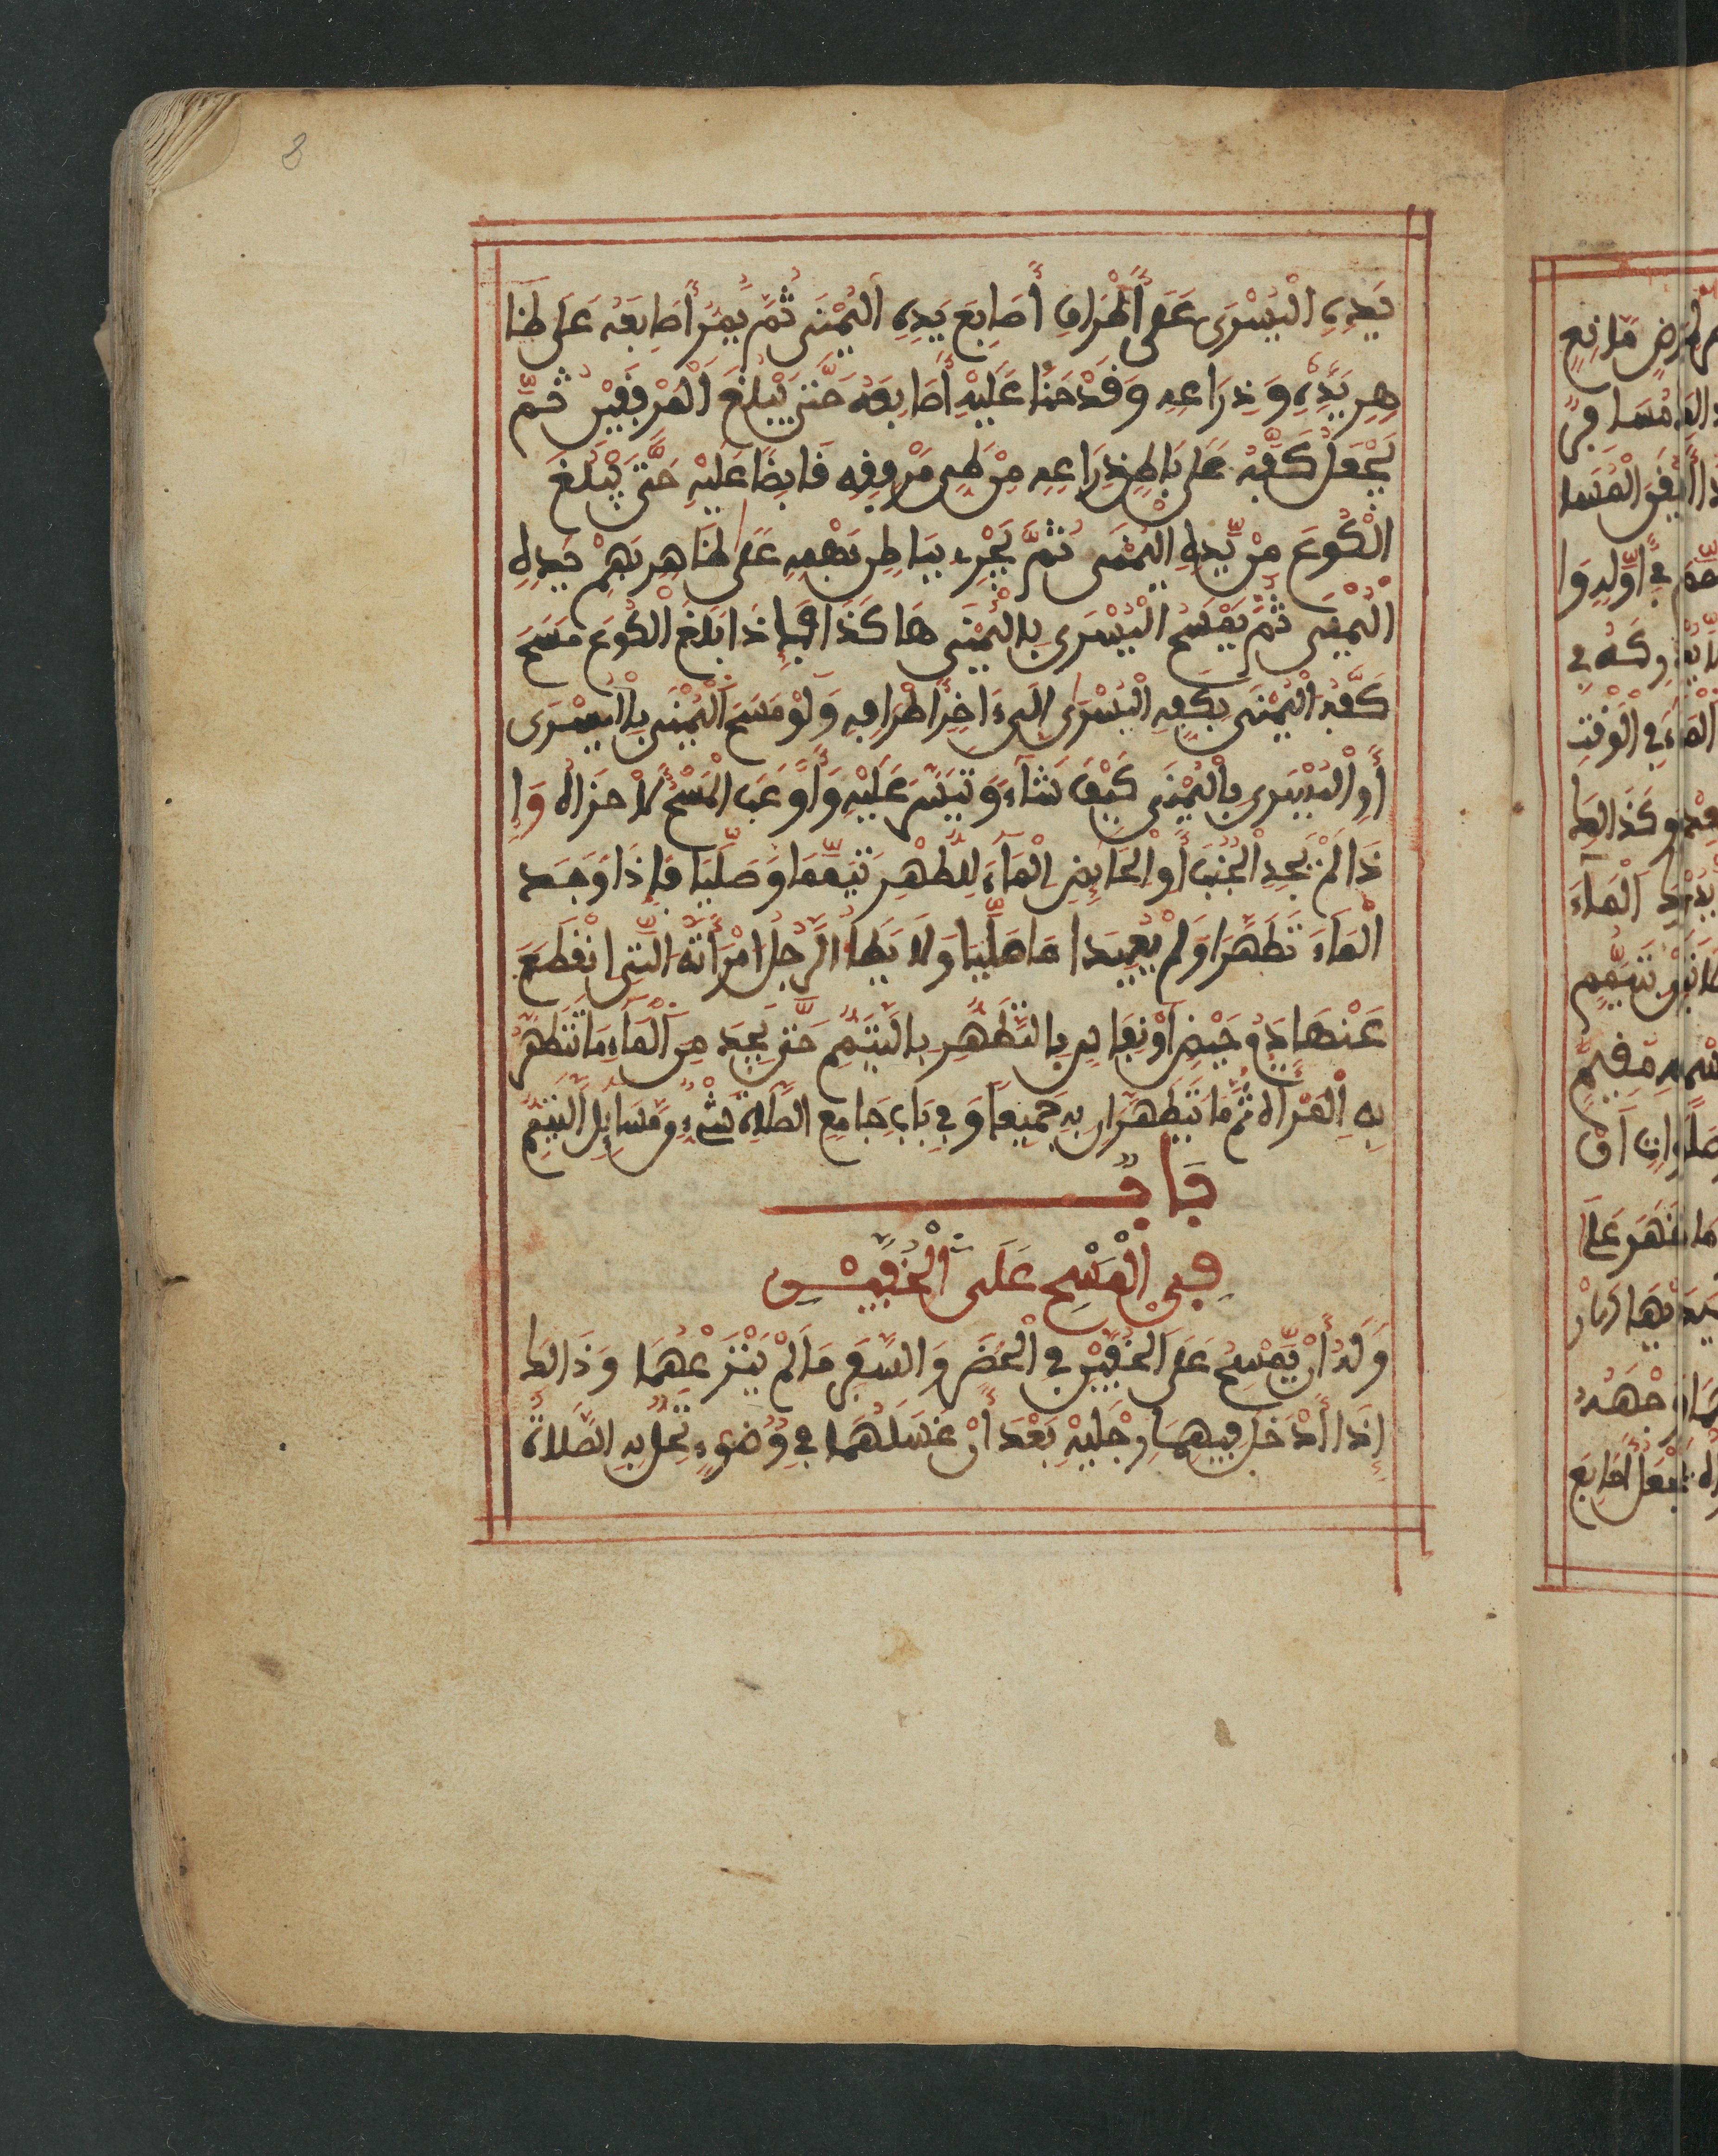 يَدِهِ الْيُسْرَى عَلَى أَطْرَافِ أَصَابِعِ يَدِهِ الْيُمْنَى ثُمَّ يُمِرُّ أَصَابِعَهُ عَلَى ظَا
هِرِ يَدِهِ وَذِرَاعِهِ وَقَدْ حَنَا عَلَيْهِ أَصَابِعَهُ حَتَّى يَبْلُغَ الْمِرْفَقَيْنِ ثُمَّ
يَجْعَلُ كَفَّهُ عَلَى بَاطِنِ ذِرَاعِهِ مِنْ طَيِّ مِرْفَقِهِ قَابِضًا عَلَيْهِ حَتَّى يَبْلُغَ
الْكُوعَ مِنْ يَدِهِ الْيُمْنَى ثُمَّ يُجْرِي بِبَاطِنِ بَهْمِهِ عَلَى ظَاهِرِ بَهْمِ يَدِهِ
الْيُمْنَى ثُمَّ يَمْسَحُ الْيُسْرَى بِالْيُمْنَى هَاكَذَا فَإِذَا بَلَغَ الْكُوعَ مَسَحَ
كَفَّهُ الْيُمْنَى بِكَفِّهِ الْيُسْرَى إِلَى ءَاخِرِ أَطْرَافِهِ وَلَوْ مَسَحَ الْيُمْنَى بِالْيُسْرَى
أَوِ الْيُسْرَى بِالْيُمْنَى كَيْفَ شَاءَ وَتَيَسَّرَ عَلَيْهِ وَأَوْعَبَ الْمَسْحَ لَأَجْزَاهُ وَإِ
ذَا لَمْ يَجِدِ الْجُنُبُ أَوِ الْحَائِضُ الْمَاءَ لِلطُّهْرِ تَيَمَّمَا وَصَلَّيَا فَإِذَا وَجَدَ
الْمَاءَ تَطَهَّرَا وَلَمْ يُعِيدَا مَا صَلَّيَا وَلَا يَطَأُ الرَّجُلُ امْرَأَتَهُ الَّتِي انْقَطَعَ
عَنْهَا دَمُ حَيْضٍ أَوْ نِفَاسٍ بِالتَّطَهُّرِ بِالتَّيَمُّمِ حَتَّى يَجِدَ مِنَ الْمَاءِ مَا تَتَطَهَّرُ
بِهِ الْمَرْأَةُ ثُمَّ مَا يَتَطَهَّرَانِ بِهِ جَمِيعًا وَفِي بَابِ جَامِعِ الصَّلَاةِ شَيْءٌ مِنْ مَسَائِلِ التَّيَمُّمِ
بَابٌ
فِي الْمَسْحِ عَلَى الْخُفَّيْنِ
وَلَهُ أَنْ يَمْسَحَ عَلَى الْخُفَّيْنِ فِي الْحَضَرِ وَالسَّفَرِ مَا لَمْ يَنْزِعْهُمَا وَذَالِكَ
إِذَا أَدْخَلَ فِيهِمَا رِجْلَيْهِ بَعْدَ أَنْ غَسَلَهُمَا فِي وُضُوءٍ تَحِلُّ بِهِ الصَّلَاةُ